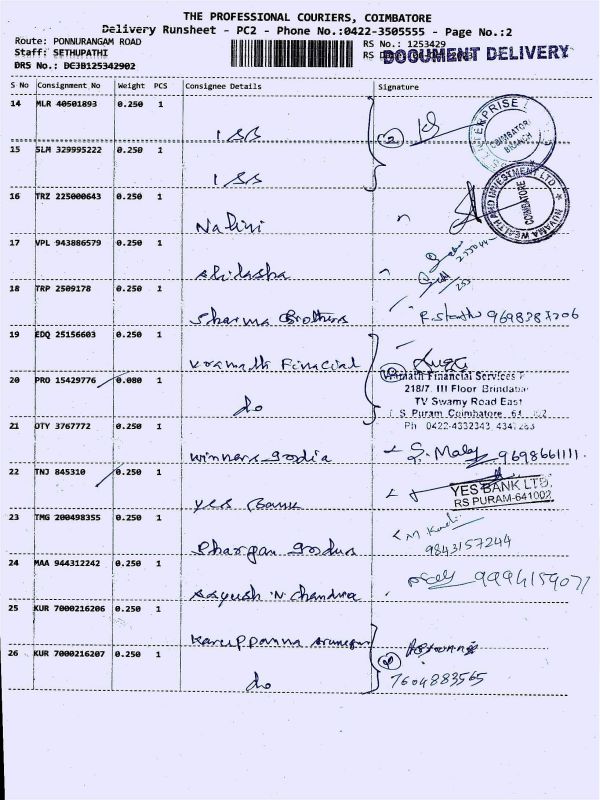 THE PROFESSIONAL COURIERS, COIMBATORE
Delivery Runsheet - PC2 - Phone No.:0422-3505555 - Page No.:2
Route: PONNURANGAM ROAD
RS No.: 1253429
Staff: SETHUPATHI
RS
DOCUMENT DELIVERY
DRS No.: DCJB125342902
S No Consignment No Weight PCS Consignee Details Signature
14 MLR 40501893 0.250 1
ISB
ENTERPRISE
COIMBATORE
BRANCH
15 SLM 329995222 0.250 1
ISB
NUVAMA WEALTH AND INVESTMENT LTD.
COIMBATORE
16 TRZ 225000643 0.250 1
Nalini
17 VPL 943886579 0.250 1
Abilasha
18 TRP 2509178 0.250 1
Sharma Brothers
9698787206
19 EDQ 25156603 0.250 1
Financial
Financial Services
20 PRO 15429776 0.080 1
218/7, III Floor Brindaba
do
TV Swamy Road East
S Puram Coimbatore
Ph 0422-4332343
21 OTY 3767772 0.250 1
winners India
9698661111.
22 TNJ 845310 0.250 1
Yes Bank
YES BANK LTD.
RS PURAM-641002
23 TMG 200498355 0.250 1
9843157244
24 MAA 944312242 0.250 1
Aayush N chandra
9994159071
25 KUR 7000216206 0.250 1
Karuppanna
26 KUR 7000216207 0.250 1
do
7604883565